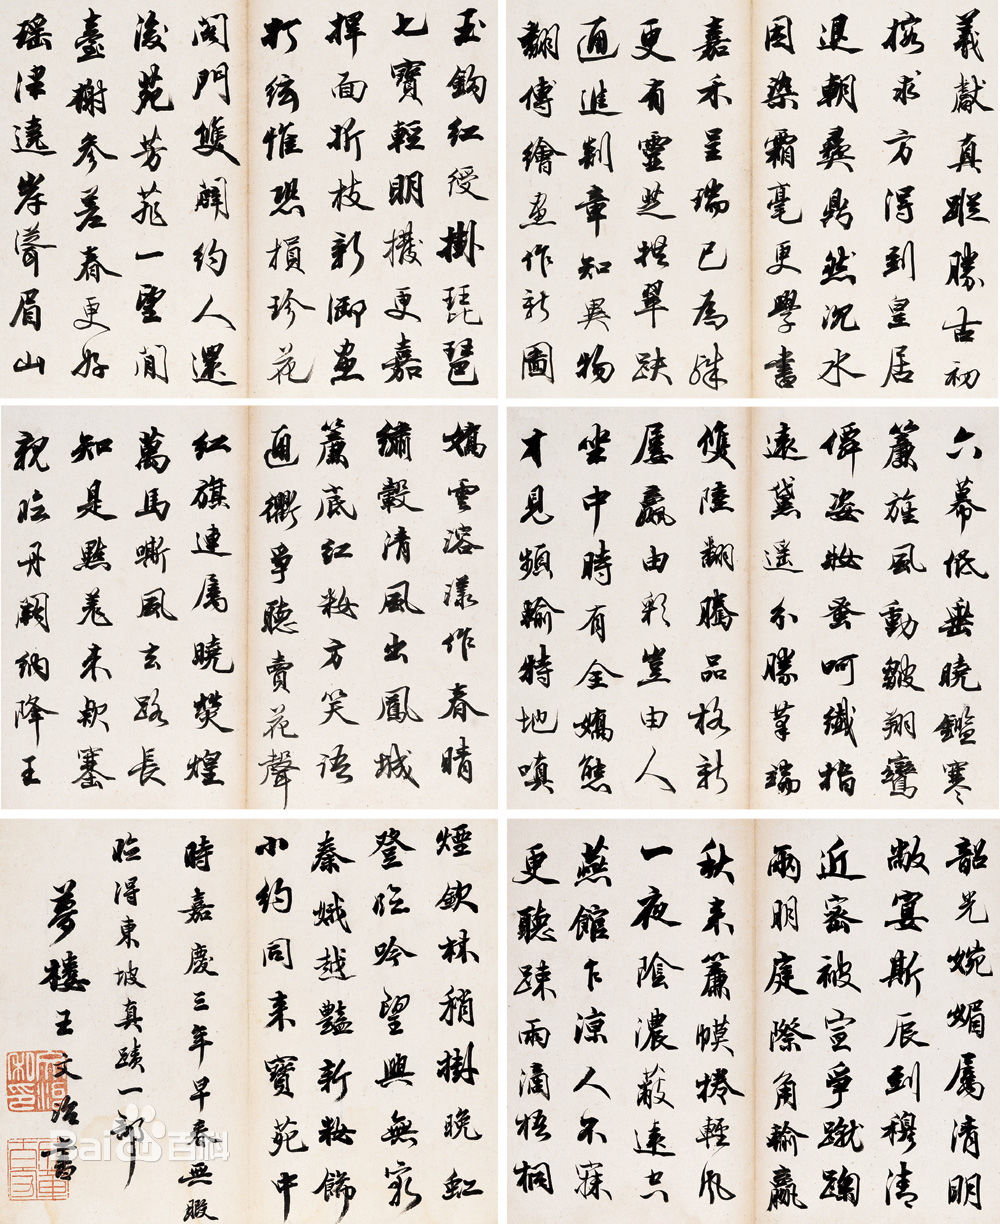 羲獻真蹤勝古初
搜求方得到皇居
退朝彝鼎然沉水
因染霜毫更學書
嘉禾呈瑞已為殊
更有靈芝拱翠趺
通進剡章知異物
翻傳繪畫作新圖
玉鈎紅綬掛琵琶
七寶輕明撥更嘉
捍面折枝新御畫
打弦惟恐損珍花
閤門雙闢約人還
後苑芳菲一望閒
臺榭參差春更好
瑤津遶岸聳眉山
六幕低垂曉鑑寒
簾旌風動皺翔鸞
姿妝蚤呵纖指
遠黛遥分勝筆端
雙陸翻騰品格新
屢贏由彩豈由人
坐中時有全嬌態
才見頻輸特地嗔
嬌雲溶漾作春晴
繡轂清風出鳳城
簾底紅妝方笑語
通衢爭聽賣花聲
紅旗連屬曉熒煌
萬馬嘶風去路長
知是點羌來款塞
親臨丹闕納降王
韶光婉媚屬清明
敞宴斯辰到穆清
近密被宣爭蹴踘
兩明庭際角輸贏
秋來簾幙捲輕風
一夜陰濃蔽遠空
燕館乍涼人不寐
更聽疎雨滴梧桐
煙歛林稍掛晚虹
登臨吟望興無窮
秦娥越豔新妝飾
小約同來寶苑中
時嘉慶三年早春無暇
臨得東坡真蹟一部
夢樓王文治書
Baidu百科